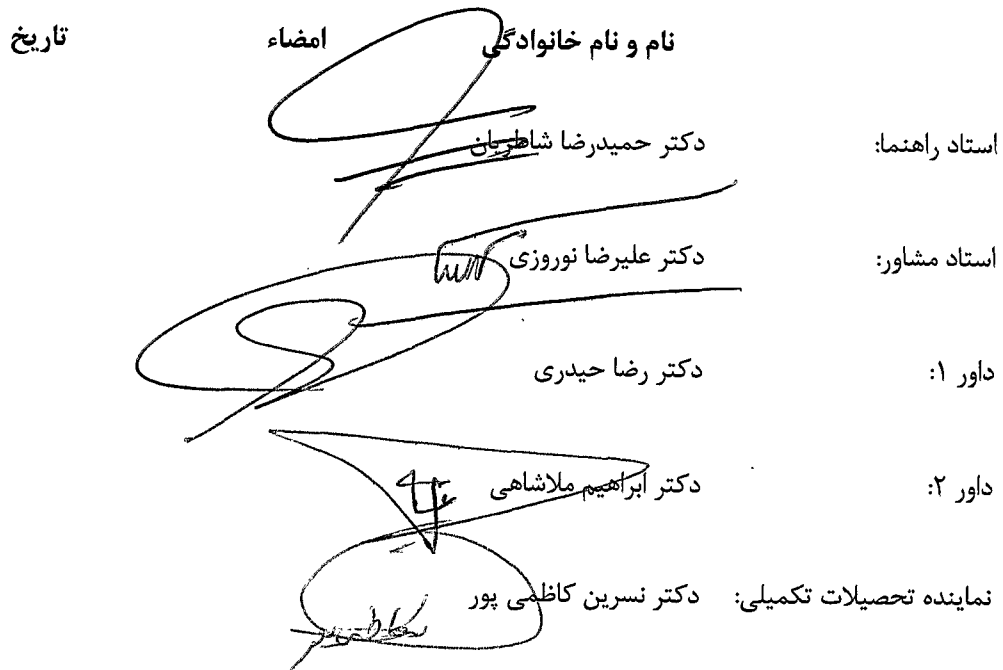 نام و نام خانوادگی امضاء تاریخ
استاد راهنما: دکتر حمیدرضا شاطریان
استاد مشاور: دکتر علیرضا نوروزی
داور ۱: دکتر رضا حیدری
داور ۲: دکتر ابراهیم ملاشاهی
نماینده تحصیلات تکمیلی: دکتر نسرین کاظمی پور